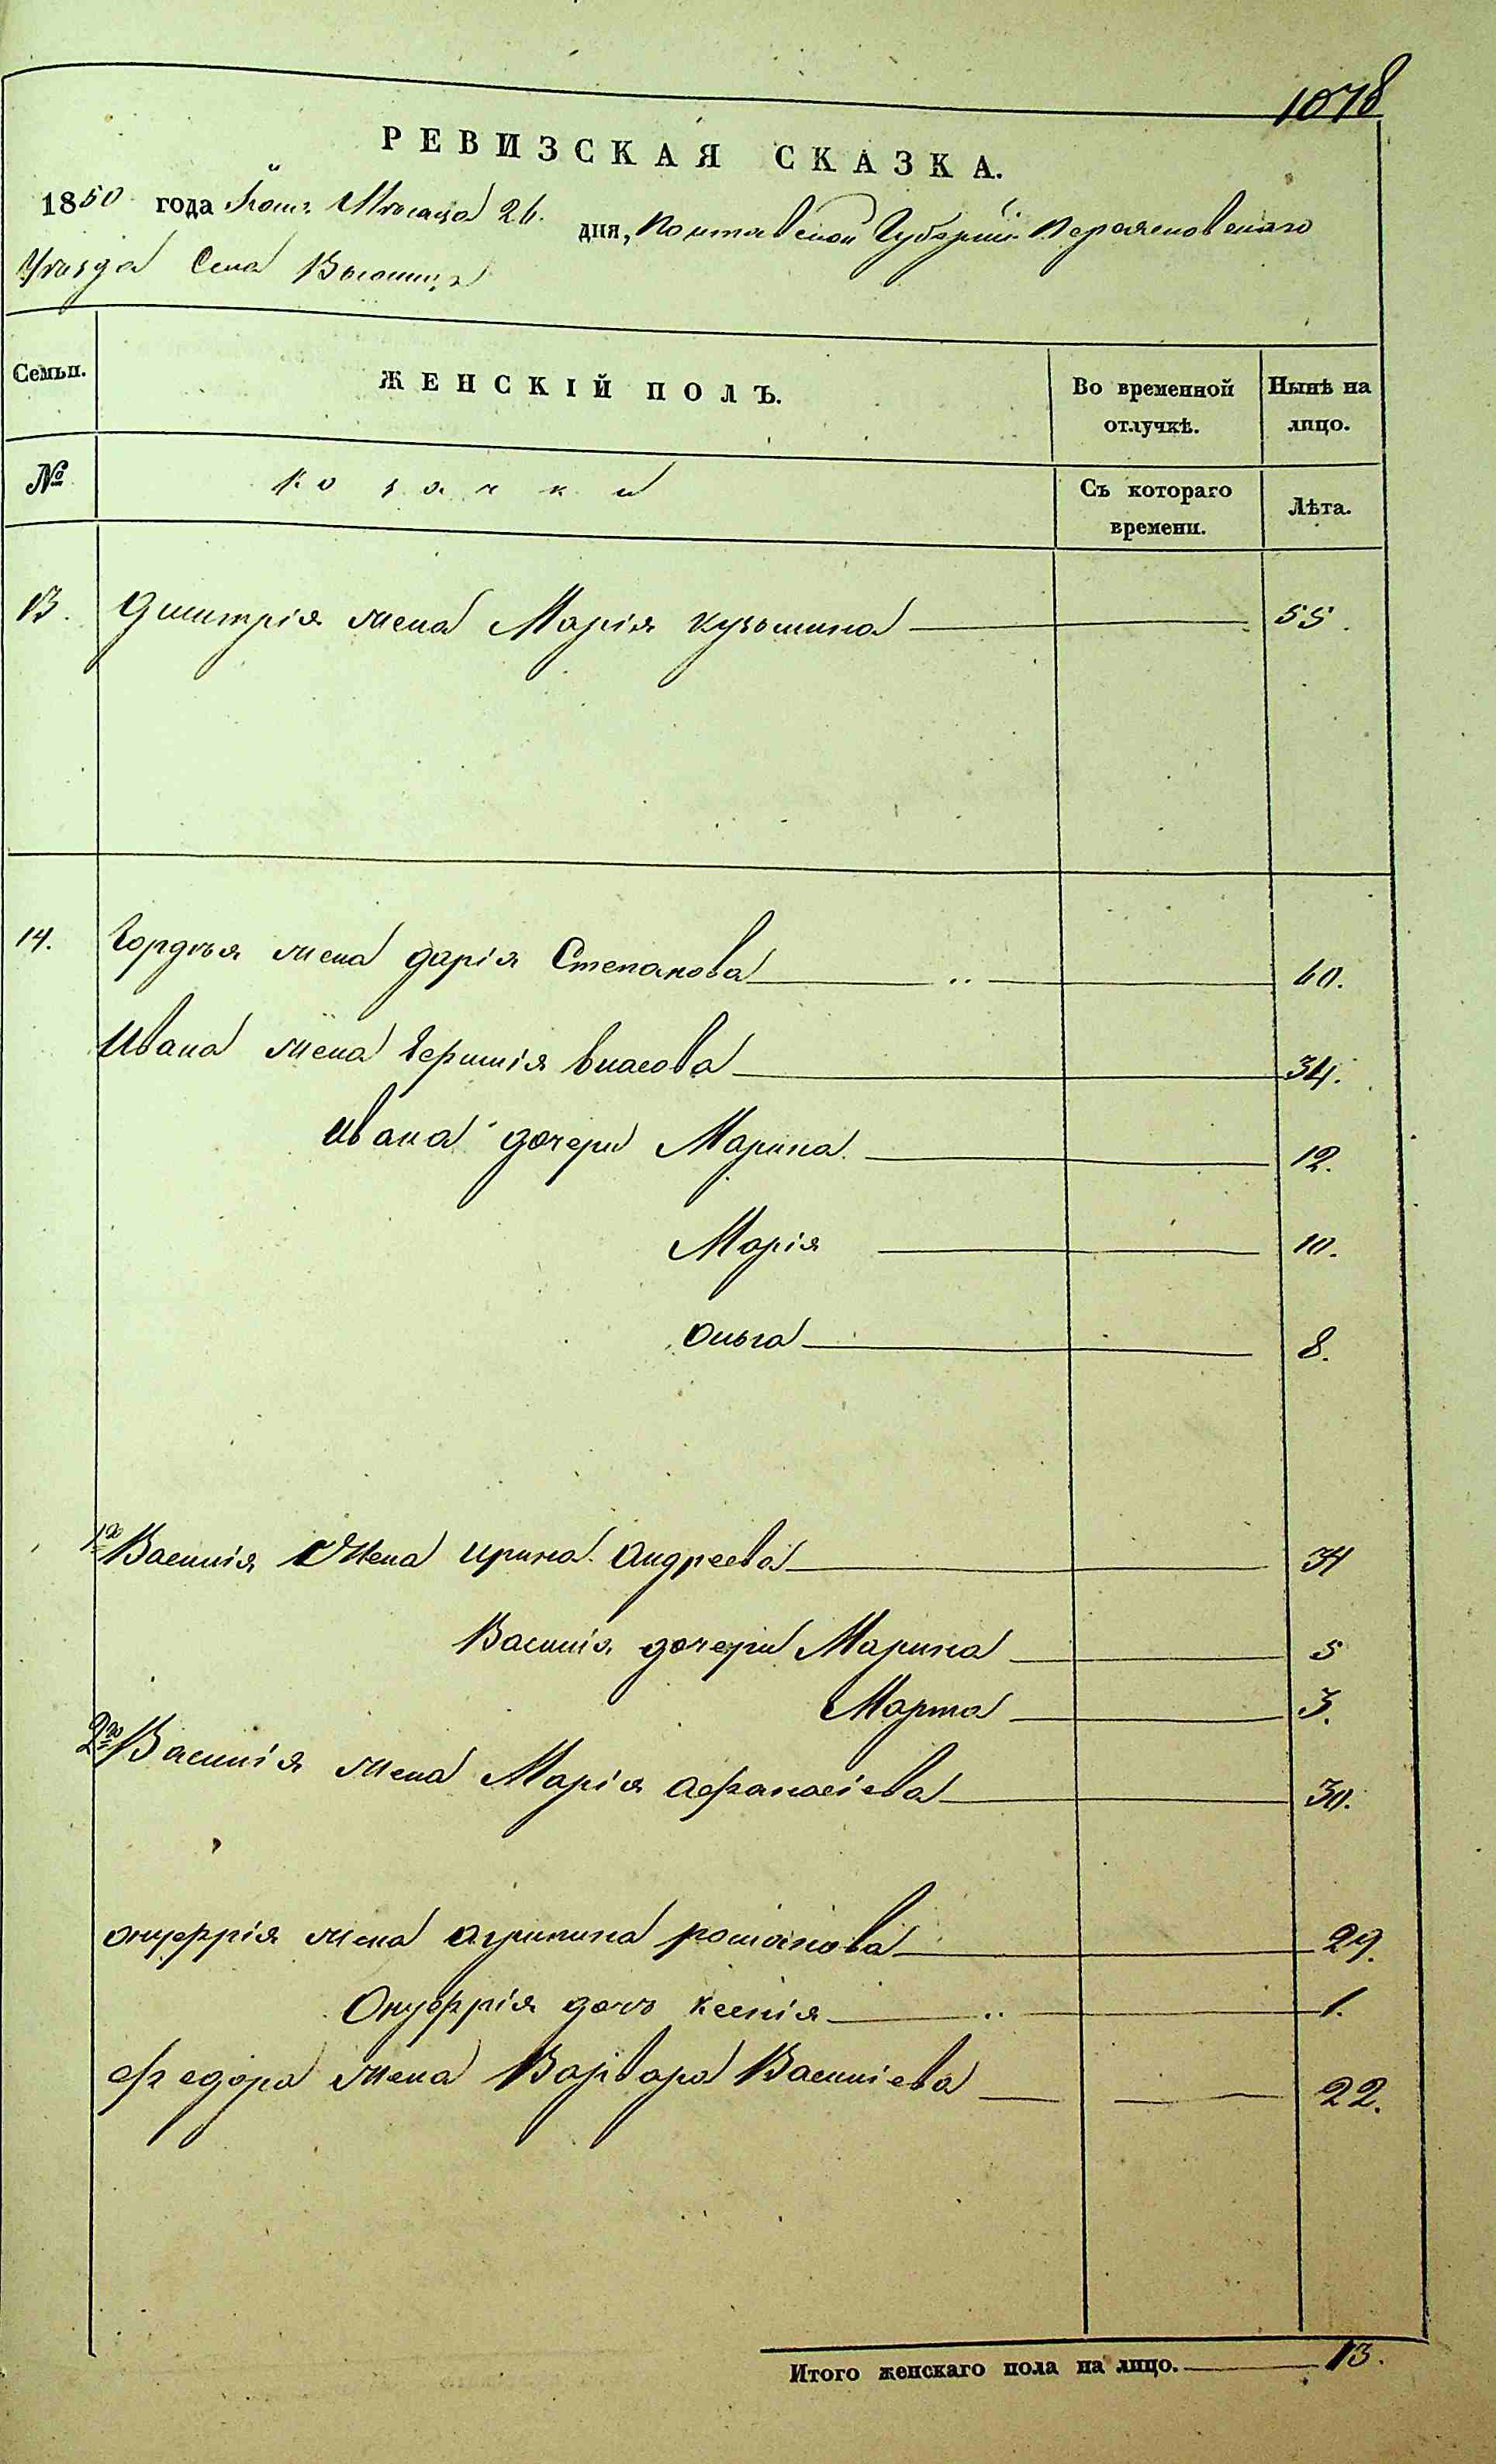 1078
РЕВИЗСКАЯ СКАЗКА.
1850 года Мѣсяца 26. дня, Полтавской Губерніи Переяславскаго
Уѣзда Села
Семьи.
ЖЕНСКІЙ ПОЛЪ.
Во временной отлучкѣ.
Нынѣ на лицо.
№
Козачки
Съ котораго времени.
Лѣта.
13. Дмитрія жена Марія Кузьмина 55.
14. Гордѣя жена Дарія Степанова 60.
Ивана жена Власова 34.
Ивана дочери Марина 12.
Марія 10.
Ольга 8.
1го Василія Жена Ирина Андреева 34
Василія дочери Марина 5
Марта 3.
2го Василія жена Марія Афанасіева 30.
Онуфрія жена Агрипина Романова 29.
Онуфрія дочь Ксенія 1.
Федора жена Варвара Василіева 22.
Итого женскаго пола на лицо. 13.